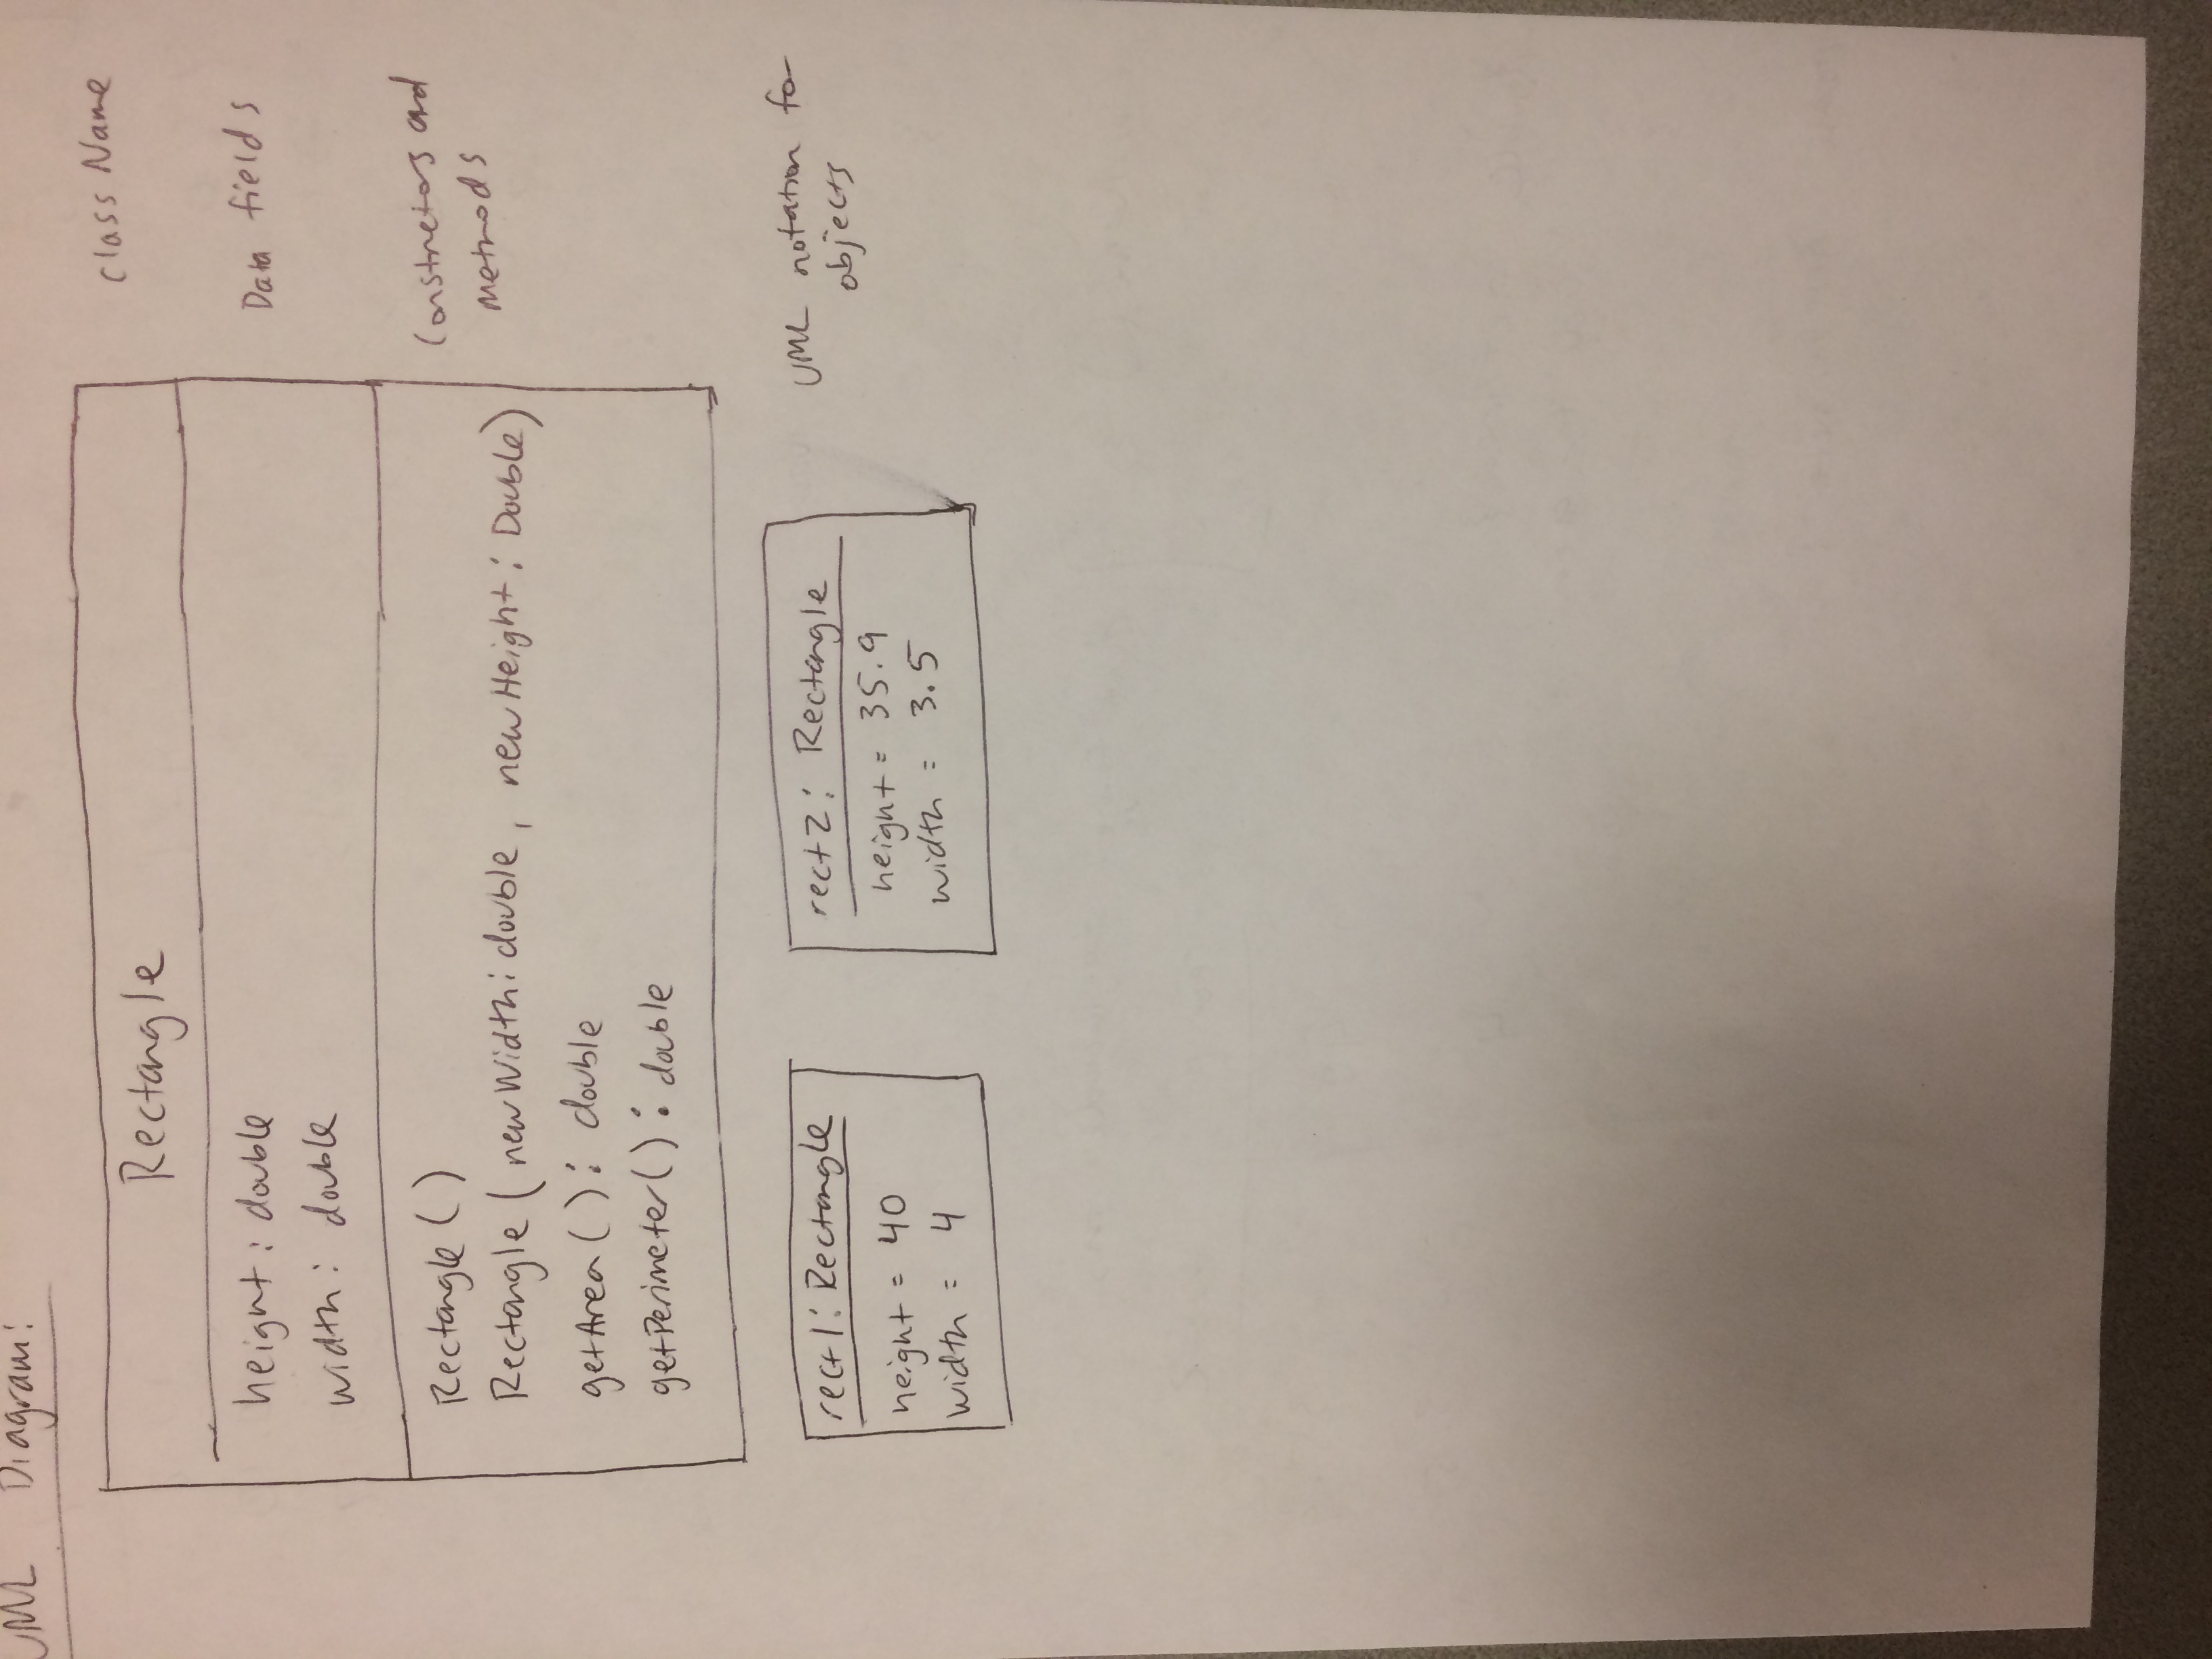 UML Diagram:
Rectangle
class Name
height: double
width: double
Data fields
Rectangle()
Rectangle(newWidth: double, newHeight: Double)
getArea(): double
getPerimeter(): double
Constructors and
methods
rect1: Rectangle
height = 40
width = 4
rect2: Rectangle
height = 35.9
width = 3.5
UML notation for
objects